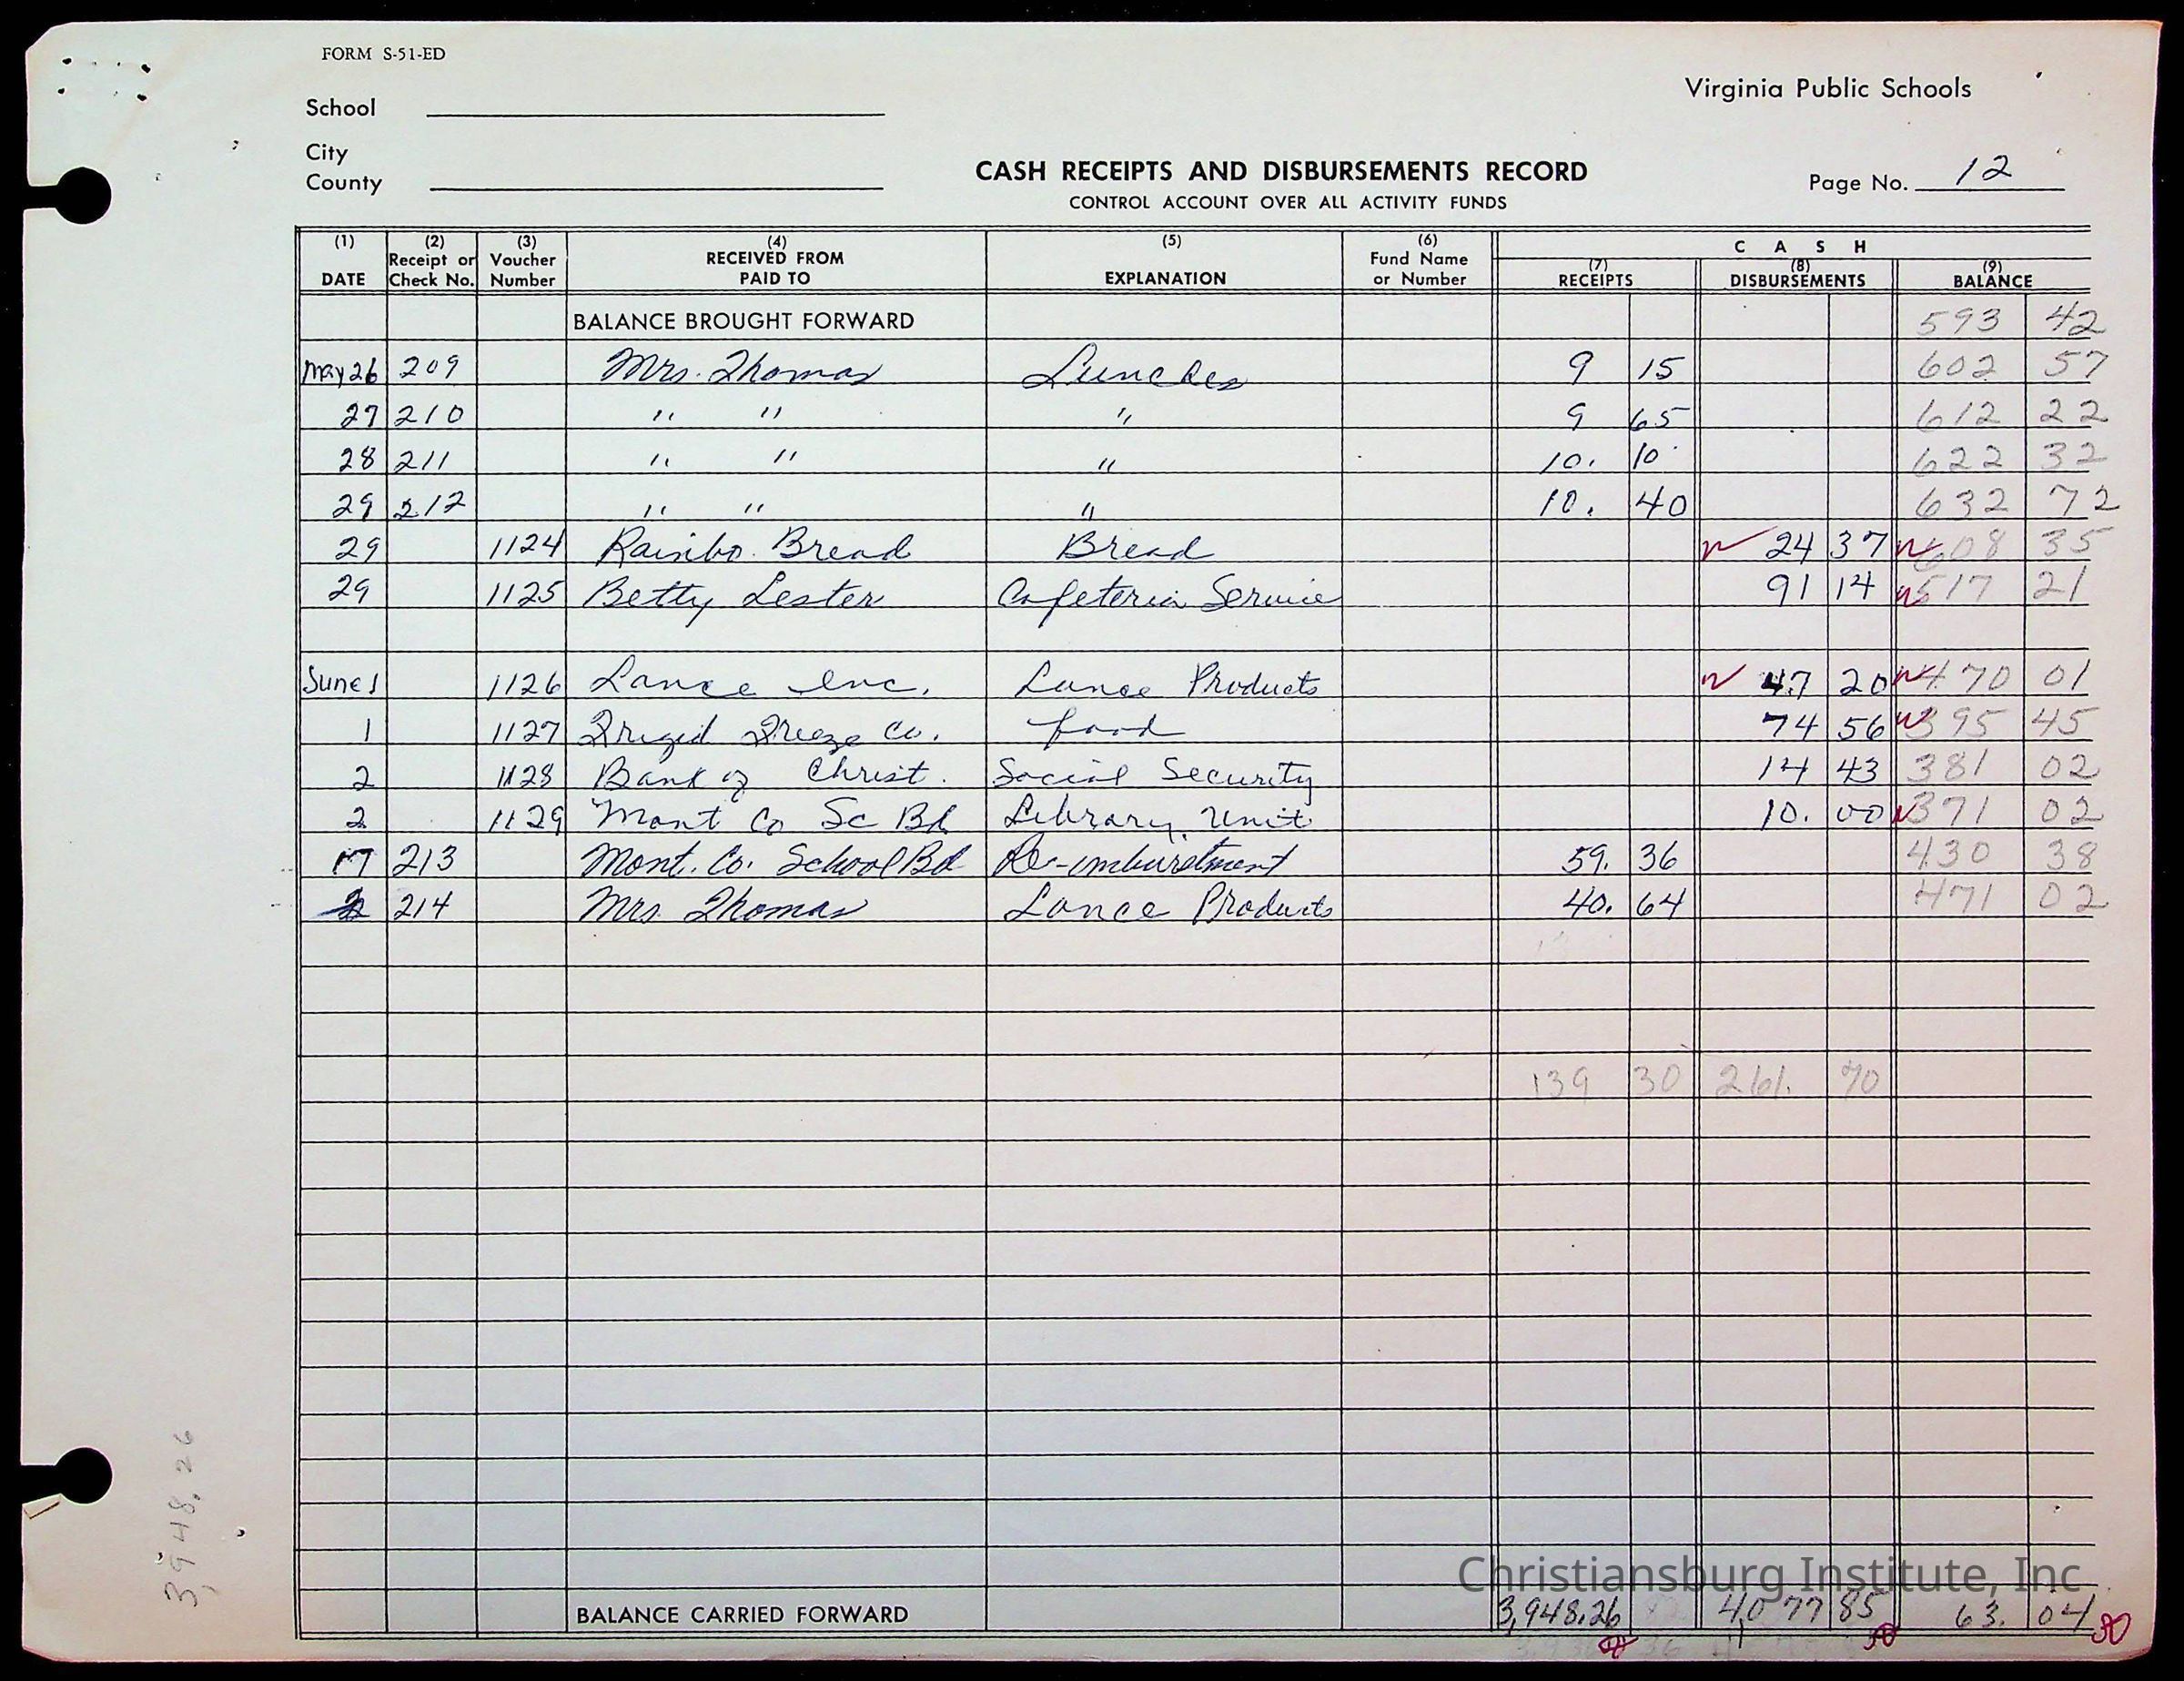 FORM S-51-ED
Virginia Public Schools
School
City
County
CASH RECEIPTS AND DISBURSEMENTS RECORD
CONTROL ACCOUNT OVER ALL ACTIVITY FUNDS
Page No. 12
(1) DATE (2) Receipt or Check No. (3) Voucher Number (4) RECEIVED FROM PAID TO (5) EXPLANATION (6) Fund Name or Number CASH (7) RECEIPTS (8) DISBURSEMENTS (9) BALANCE
BALANCE BROUGHT FORWARD 593 42
May 26 209 Mrs. Thomas Lunches 9 15 602 57
27 210 " " " 9 65 612 22
28 211 " " " 10. 10 622 32
29 212 " " " 10. 40 632 72
29 1124 Rainbo Bread Bread 24 37 608 35
29 1125 Betty Lester Cafeteria Service 91 14 517 21
June 1 1126 Lance Inc. Lance Products 47 20 470 01
1 1127 Frigid Freeze Co. food 74 56 395 45
2 1128 Bank of Christ. Social Security 14 43 381 02
2 1129 Mont Co Sc Bd Library Unit 10. 00 371 02
17 213 Mont. Co. School Bd Re-imburstment 59. 36 430 38
2 214 Mrs. Thomas Lance Products 40. 64 471 02
139 30 261. 70
3,948.26
Christiansburg Institute, Inc
BALANCE CARRIED FORWARD 3,948.26 4,077 85 63. 04